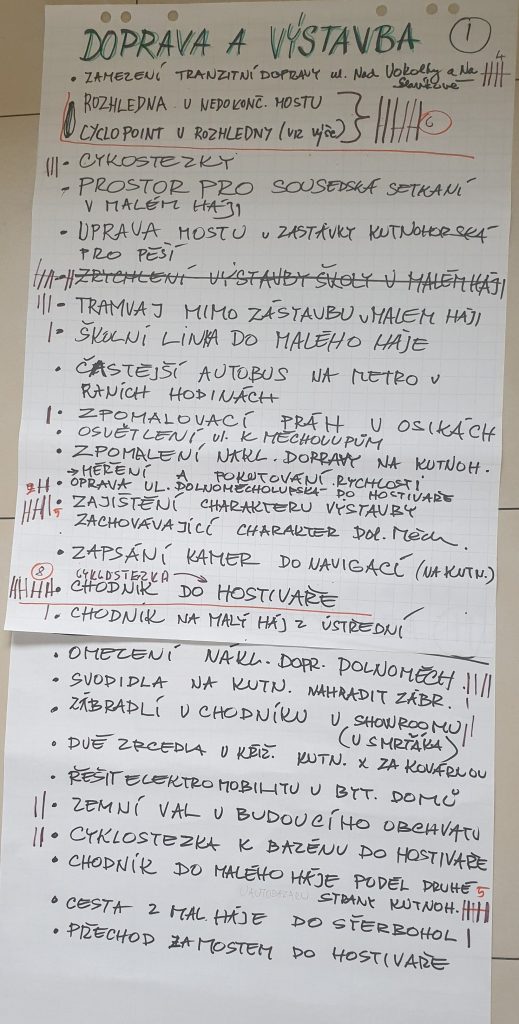 DOPRAVA A VÝSTAVBA 1
• ZAMEZENÍ TRANZITNÍ DOPRAVY ul. Nad Vokolky a Na 4
Slavíkově
ROZHLEDNA U NEDOKONČ. MOSTU
CYCLOPOINT U ROZHLEDNY (VIZ VÝŠE) 6
• CYKOSTEZKY
- PROSTOR PRO SOUSEDSKÁ SETKÁNÍ
V MALÉM HÁJI
• ÚPRAVA MOSTU U ZASTÁVKY KUTNOHORSKÁ
PRO PĚŠÍ
ZRYCHLENÍ VÝSTAVBY ŠKOLY V MALÉM HÁJI
- TRAMVAJ MIMO ZÁSTAVBU V MALEM HÁJI
• ŠKOLNÍ LINKA DO MALÉHO HÁJE
• ČASTĚJŠÍ AUTOBUS NA METRO V
RANÍCH HODINÁCH
• ZPOMALOVACÍ PRÁH U OSIKÁCH
• OSVĚTLENÍ ul. K MĚCHOLUPŮM
• ZPOMALENÍ NÁKL. DOPRAVY NA KUTNOH.
→ MĚŘENÍ A POKUTOVÁNÍ RYCHLOSTI
• OPRAVA UL. DOLNOMĚCHOLUPSKÁ DO HOSTIVAŘE
5 • ZAJIŠTĚNÍ CHARAKTERU VÝSTAVBY
ZACHOVÁVAJÍCÍ CHARAKTER DOL. MĚCH.
• ZAPSÁNÍ KAMER DO NAVIGACÍ (NA KUTN.)
8 CYKLOSTEZKA →
• CHODNÍK DO HOSTIVAŘE
• CHODNÍK NA MALÝ HÁJ Z ÚSTŘEDNÍ
• OMEZENÍ NÁKL. DOPR. DOLNOMĚCH.
• SVODIDLA NA KUTN. NAHRADIT ZÁBR.
• ZÁBRADLÍ U CHODNÍKU U SHOWROOMU
(U SMRŤÁKA)
• DVĚ ZRCEDLA U KŘIŽ. KUTN. X ZA KOVÁRNOU
• ŘEŠIT ELEKTROMOBILITU U BYT. DOMŮ
• ZEMNÍ VAL U BUDOUCÍHO OBCHVATU
• CYKLOSTEZKA K BAZÉNU DO HOSTIVAŘE
• CHODNÍK DO MALÉHO HÁJE PODÉL DRUHÉ 5
U AUTOBAZARU STRANY KUTNOH.
• CESTA Z MAL. HÁJE DO ŠTĚRBOHOL
• PŘECHOD ZA MOSTEM DO HOSTIVAŘE